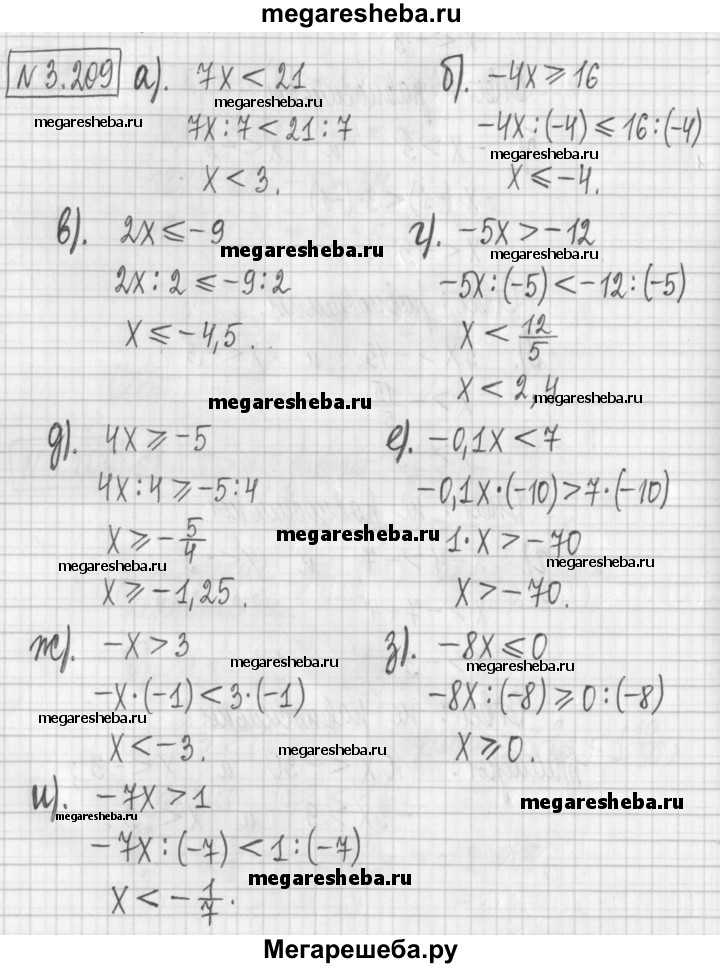 megaresheba.ru
N 3.209 а). 7x < 21 б). -4x ⩾ 16
megaresheba.ru megaresheba.ru
7x : 7 < 21 : 7 -4x : (-4) ⩽ 16 : (-4)
megaresheba.ru
x < 3. x ⩽ -4.
в). 2x ⩽ -9 г). -5x > -12
megaresheba.ru megaresheba.ru
2x : 2 ⩽ -9 : 2 -5x : (-5) < -12 : (-5)
x ⩽ -4,5. x < 12/5
x < 2,4
megaresheba.ru megaresheba.ru
д). 4x ⩾ -5 е). -0,1x < 7
4x : 4 ⩾ -5 : 4 -0,1x · (-10) > 7 · (-10)
x ⩾ -5/4 1 · x > -70
megaresheba.ru megaresheba.ru megaresheba.ru
x ⩾ -1,25. x > -70.
ж). -x > 3 з). -8x ⩽ 0
megaresheba.ru megaresheba.ru
-x · (-1) < 3 · (-1) -8x : (-8) ⩾ 0 : (-8)
megaresheba.ru
x < -3. x ⩾ 0.
megaresheba.ru
и). -7x > 1
megaresheba.ru megaresheba.ru
-7x : (-7) < 1 : (-7)
megaresheba.ru
x < -1/7.
Мегарешеба.ру